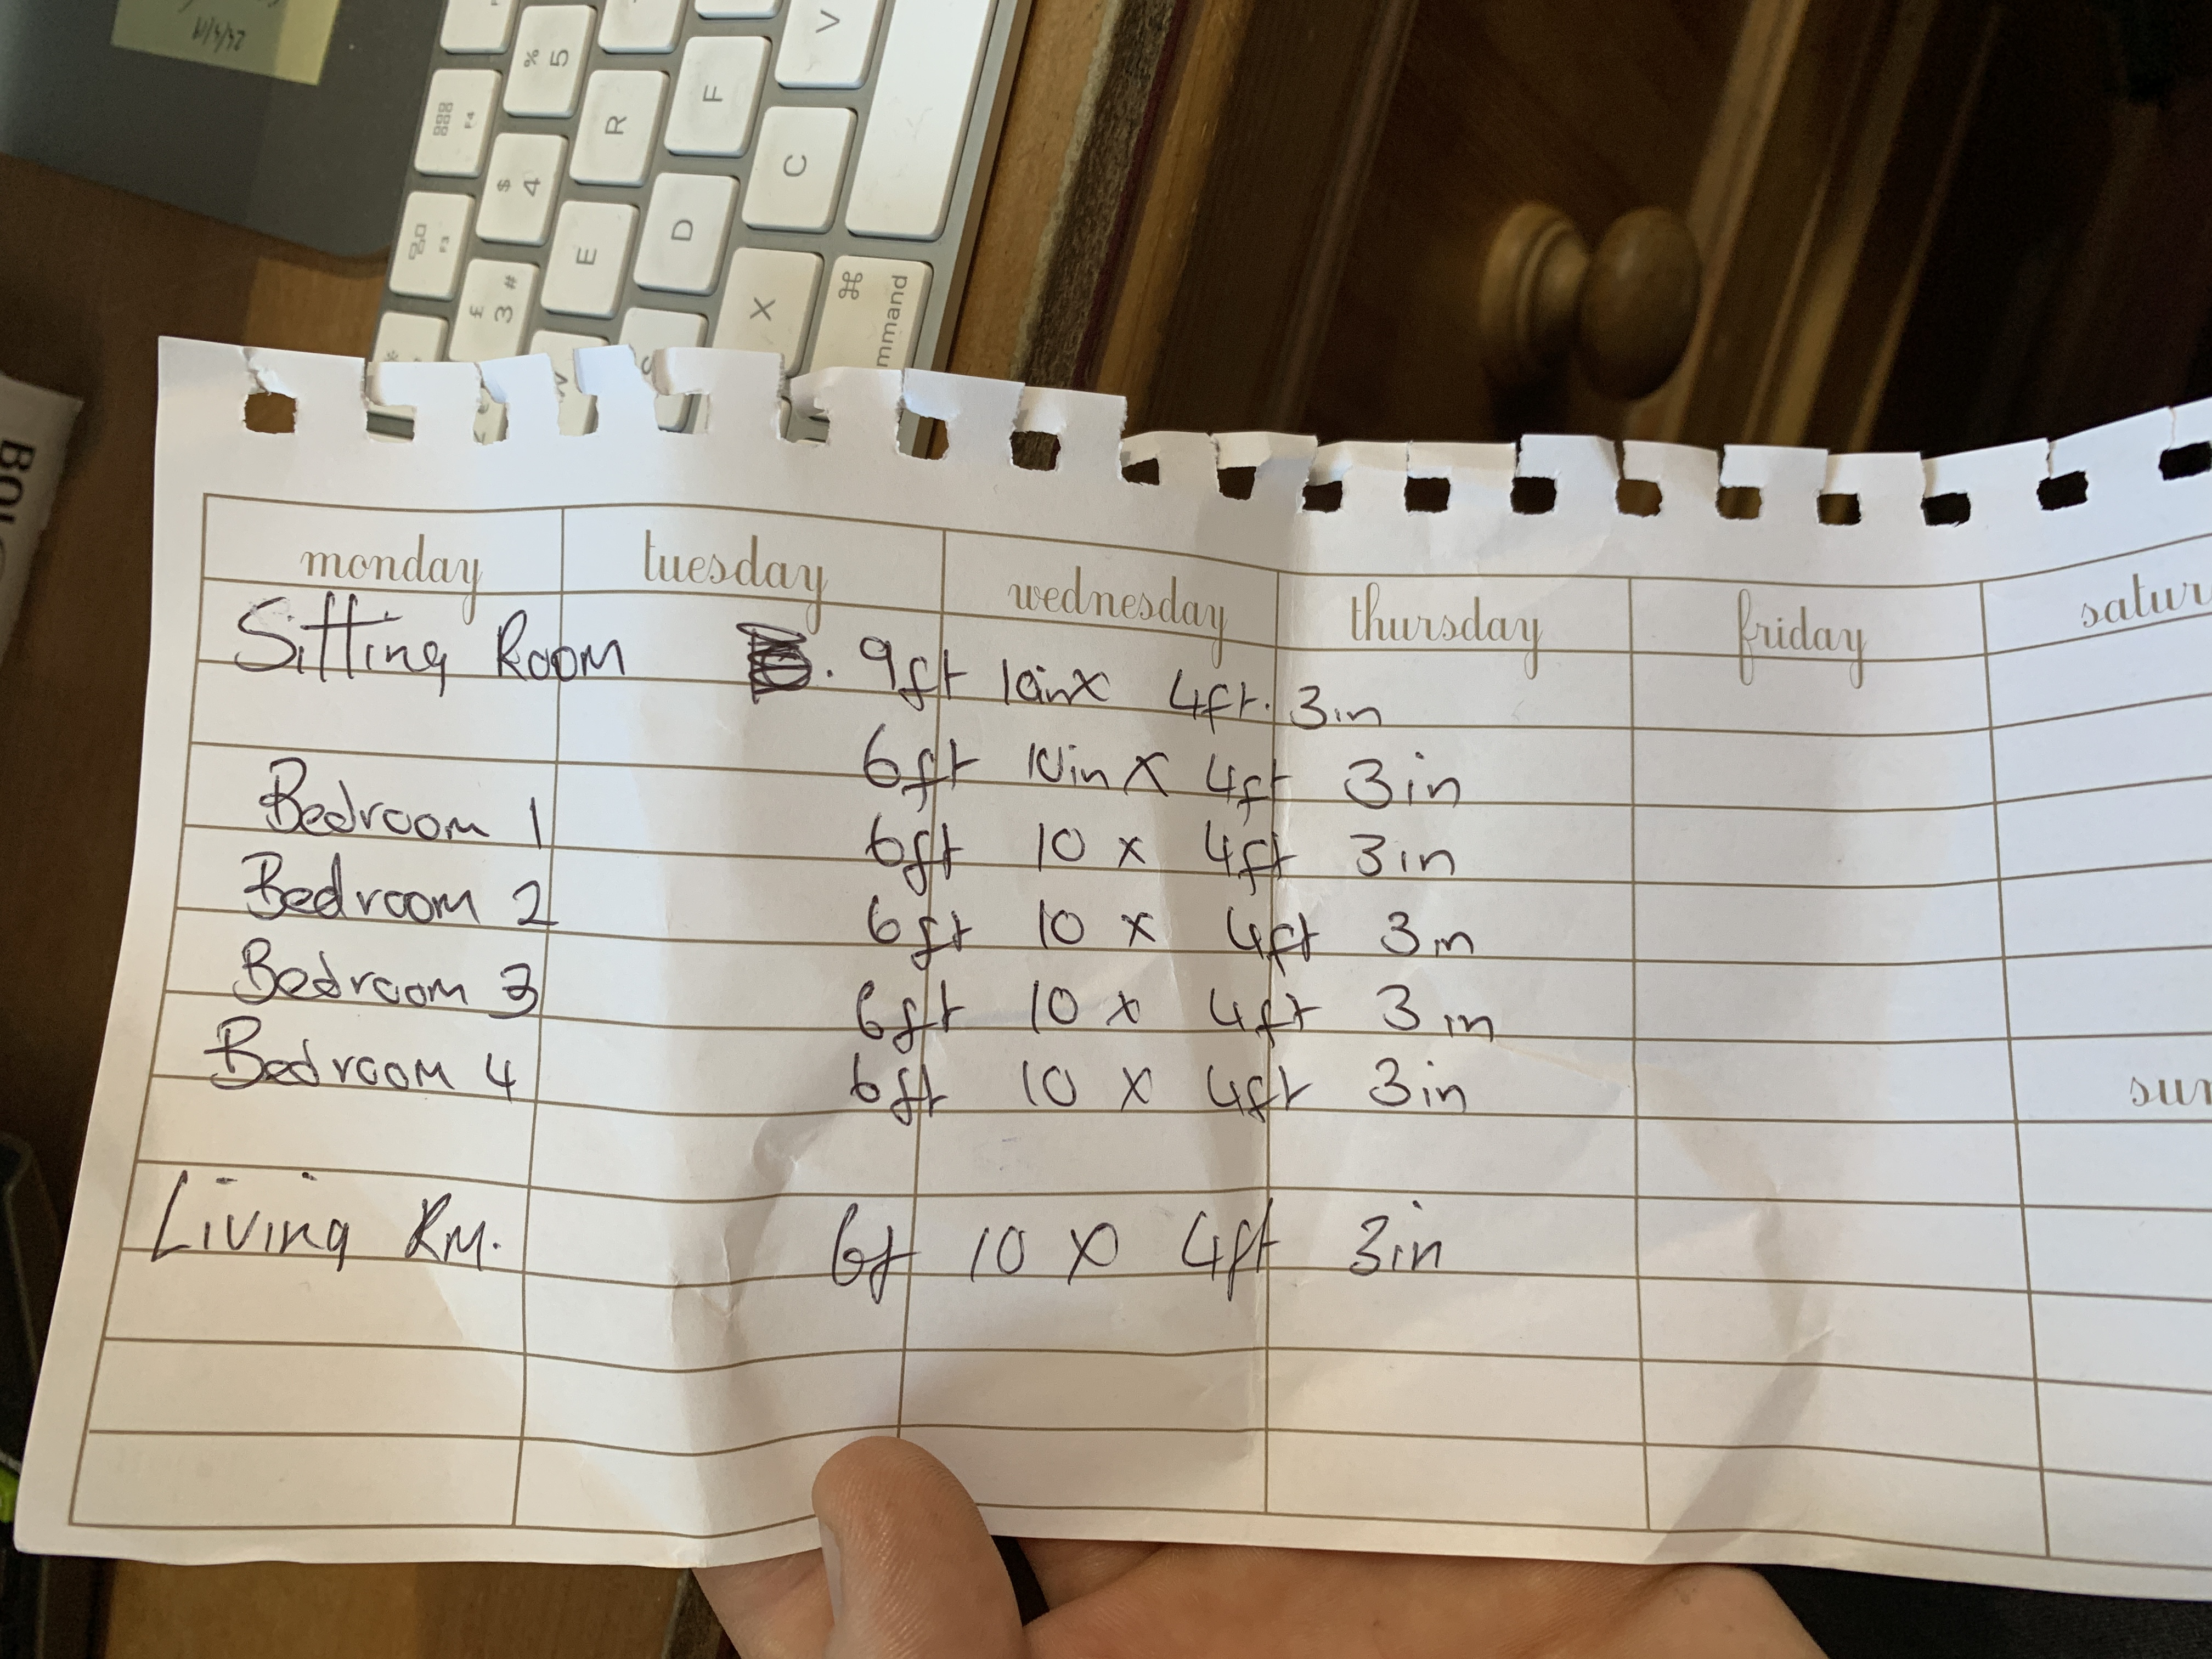 % 5
R
F
V
F4
$ 4
E
D
C
F3
£ 3 #
X
⌘
mmand
monday tuesday wednesday thursday friday satur
Sitting Room . 9ft 10in x 4ft. 3in
6ft 10in x 4ft 3in
Bedroom 1 6ft 10 x 4ft 3in
Bedroom 2 6ft 10 x 4ft 3in
Bedroom 3 6ft 10 x 4ft 3in
Bedroom 4 6ft 10 x 4ft 3in
sun
Living Rm. 6ft 10 x 4ft 3in